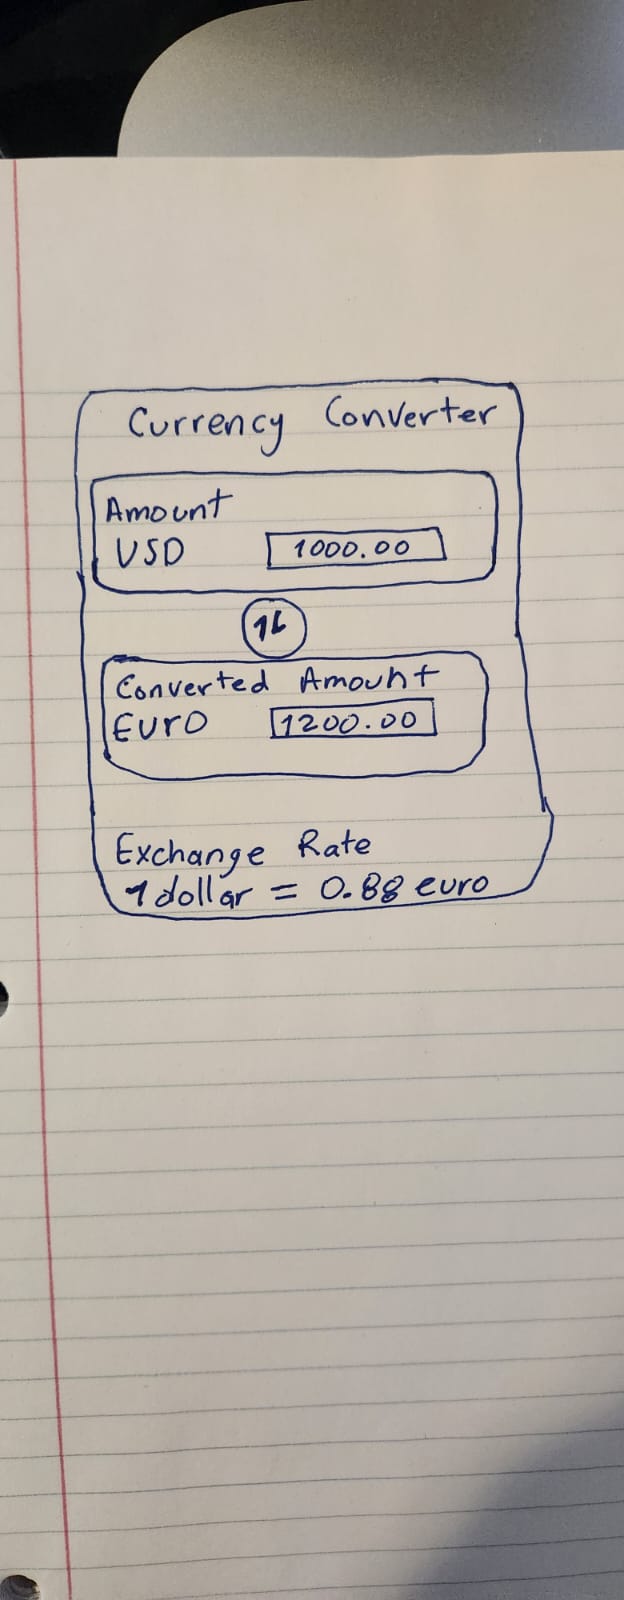 Currency Converter
Amount
USD 1000.00
↑↓
Converted Amount
Euro 1200.00
Exchange Rate
1 dollar = 0.88 euro